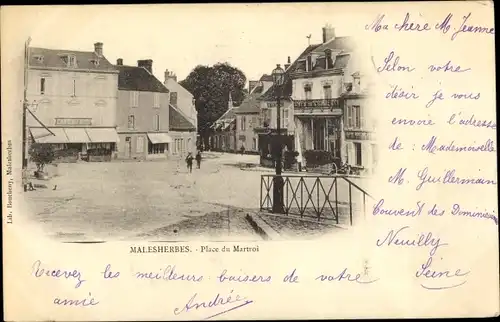 Ma chère M. Jeanne
Selon votre
désir je vous
envoie l'adresse
de : Mademoiselle
M. Guillermain
Couvent des Dominic
Neuilly
Seine
Lib. Bouchony, Malesherbes
MALESHERBES. - Place du Martroi
Recevez les meilleurs baisers de votre
amie Andrée